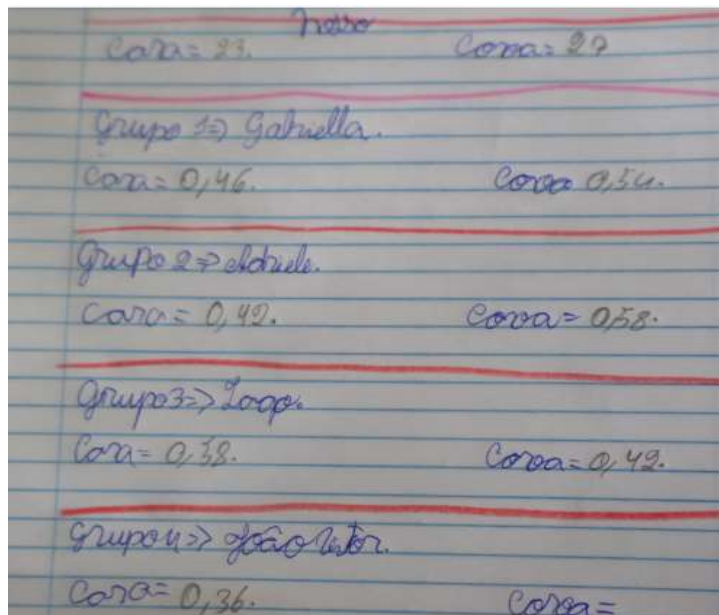 nosso
Cara = 23. Coroa = 27
Grupo 1 => Gabriella.
Cara = 0,46. Coroa 0,54.
Grupo 2 => Adriele.
Cara = 0,42. Coroa = 0,58.
Grupo 3 =>
Cara = 0,58. Coroa = 0,42.
Grupo 4 => João Vitor.
Cara = 0,36. Coroa =